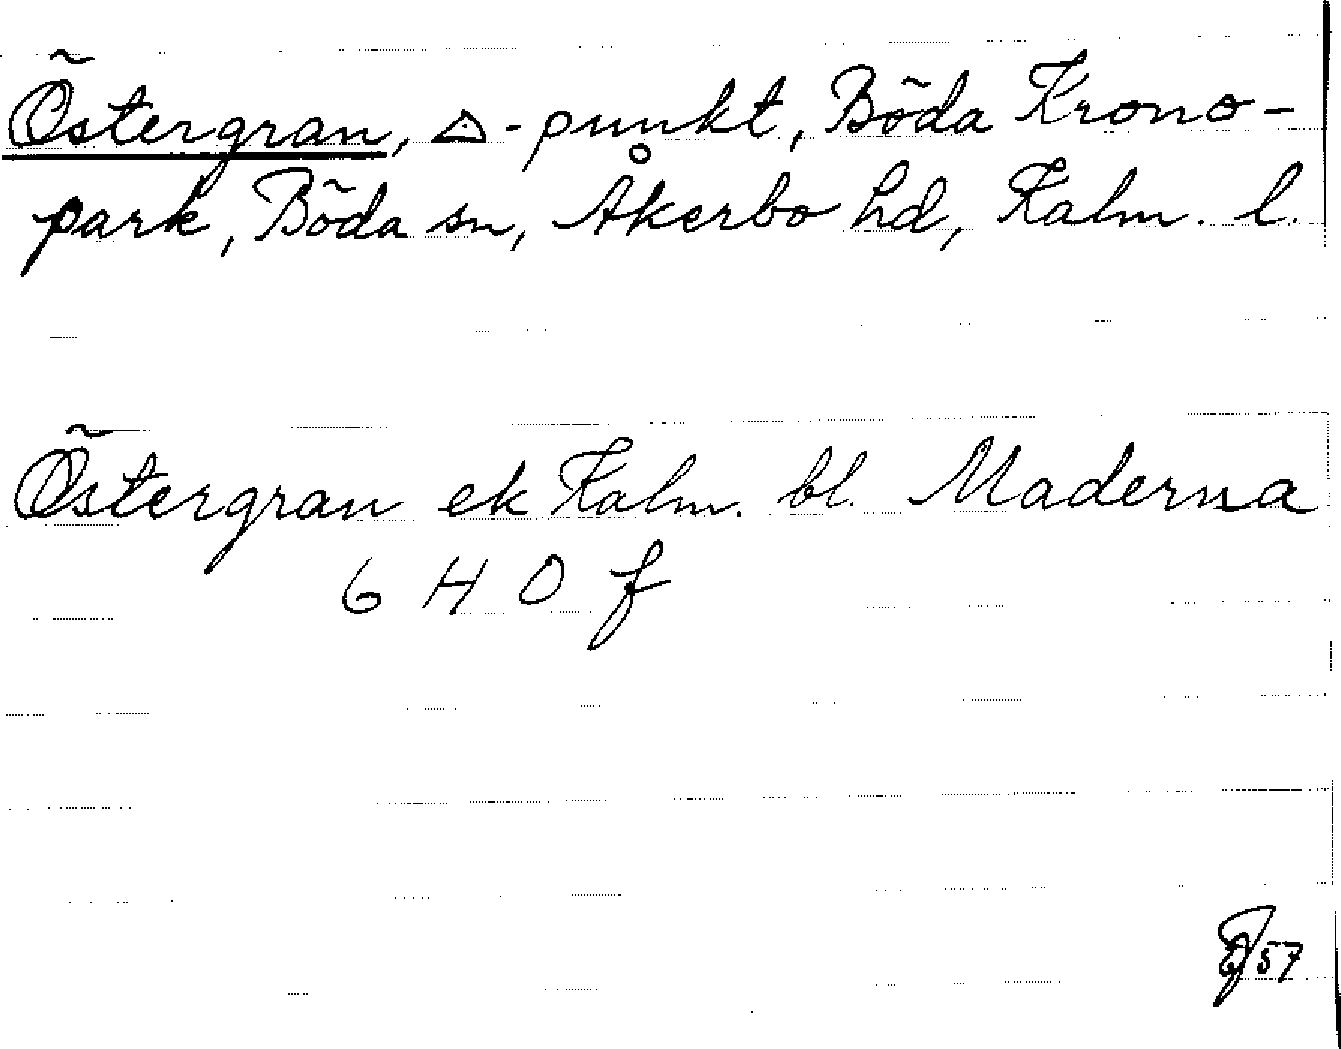 Östergran, △-punkt, Böda Krono-
park, Böda sn, Åkerbo hd, Kalm. l.
Östergran ek Kalm. bl. Maderna
6 H 0 f
57